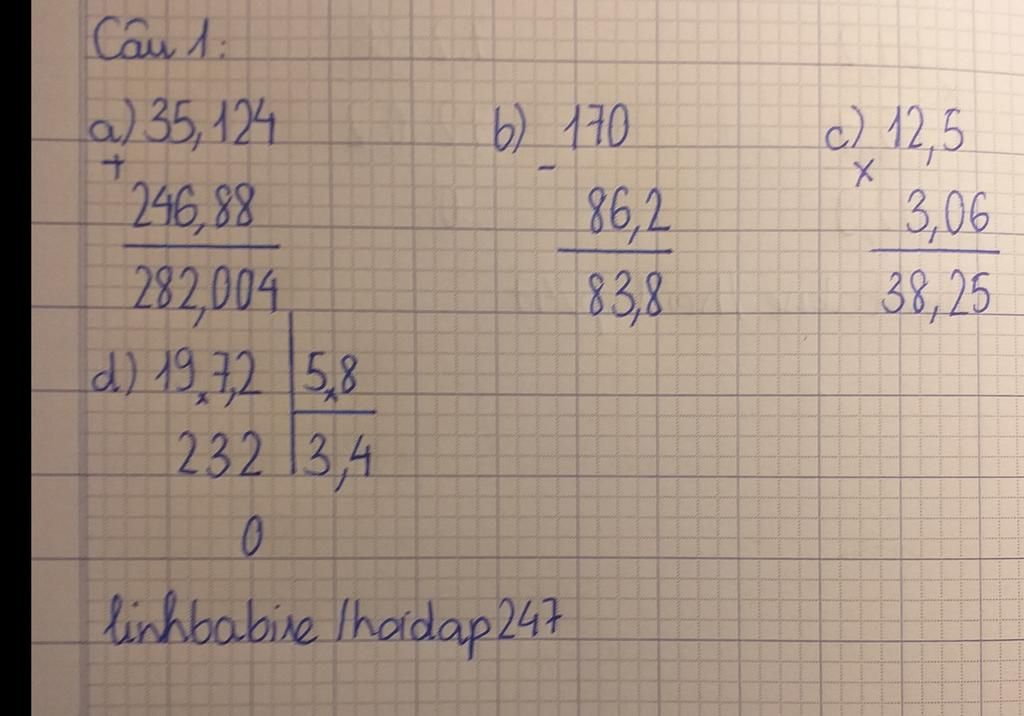 Câu 1:
a) 35,124 b) 170 c) 12,5
+ - x
246,88 86,2 3,06
282,004 83,8 38,25
d) 19,7,2 5,8
232 3,4
0
linhbabie /hoidap247